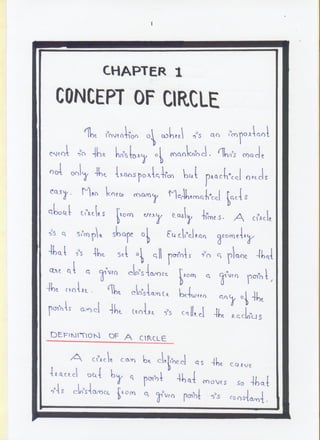 1
CHAPTER 1
CONCEPT OF CIRCLE
The invention of wheel is an important
event in the history of mankind. This made
not only the transportation but practical needs
easy. Men knew many Mathematical facts
about circles from every early times. A circle
is a simple shape of Euclidean geometry
that is the set of all points in a plane that
are at a given distance from a given point,
the centre. The distance between any of the
points and the centre is called the radius
DEFINITION OF A CIRCLE
A circle can be defined as the curve
traced out by a point that moves so that
its distance from a given point is constant.